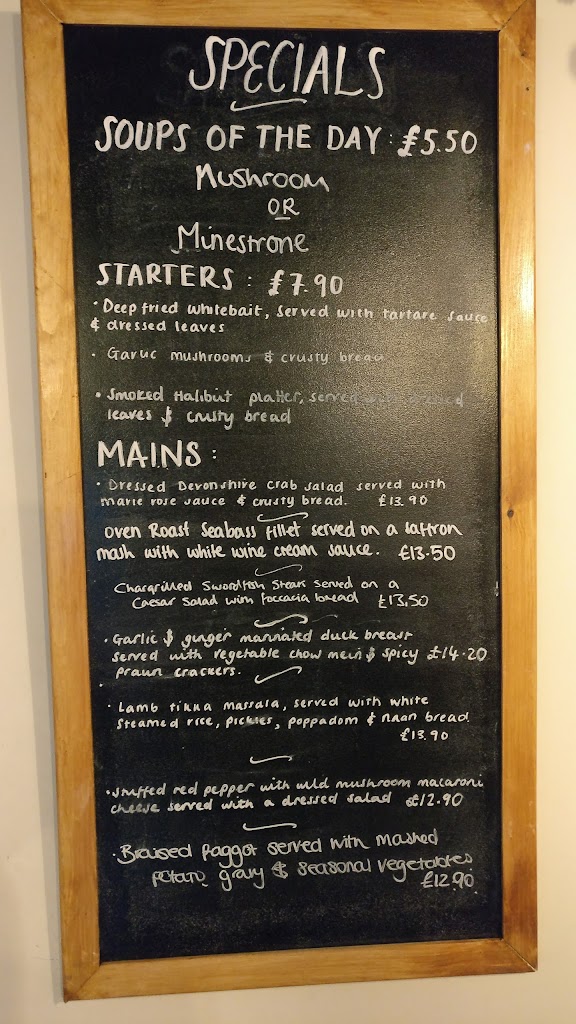 SPECIALS
SOUPS OF THE DAY · £5.50
Mushroom
OR
Minestrone
STARTERS : £7.90
· Deep fried whitebait, served with tartare sauce
& dressed leaves
· Garlic mushrooms & crusty bread
· Smoked Halibut platter, served with dressed
leaves & crusty bread
MAINS :
· Dressed Devonshire crab salad served with
marie rose sauce & crusty bread. £13.90
Oven Roast Seabass fillet served on a saffron
mash with white wine cream sauce. £13.50
Chargrilled Swordfish Steak served on a
Caesar salad with foccacia bread £13.50
· Garlic & ginger marinated duck breast
served with vegetable chow mein & spicy £14.20
prawn crackers.
· Lamb tikka massala, served with white
steamed rice, pickles, poppadom & naan bread
£13.90
· Stuffed red pepper with wild mushroom macaroni
cheese served with a dressed salad £12.90
· Braised faggot served with mashed
potato, gravy & seasonal vegetables
£12.90